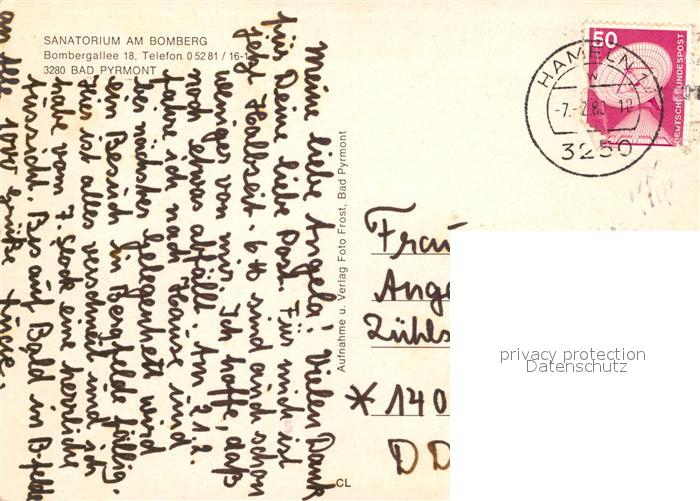 SANATORIUM AM BOMBERG
Bombergallee 18, Telefon 05281 / 16-1
3280 BAD PYRMONT
Meine liebe Angela! Vielen Dank
für Deine liebe Post. Für mich ist
jetzt Halbzeit. 6 ℔ sind auch schon
weniger von mir. Ich hoffe, daß
noch etwas abfällt. Am 21.2.
fahre ich nach Hause und
bei nächster Gelegenheit wird
ein Besuch in Bergfelde fällig.
Hier ist alles verschneit und ich
habe vom 7. Stock eine herrliche
Aussicht. Bis auf Bald in B-felde
an alle 1000 Grüße
Aufnahme u. Verlag Foto Frost, Bad Pyrmont
CL
50
DEUTSCHE BUNDESPOST
HAMELN 1
-7.-2.80 18
3250
Frau
Ange
Zühls
* 140
DD
privacy protection
Datenschutz